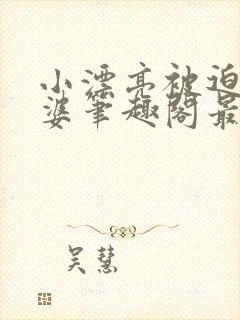 小漂亮被迫
婆笔趣阁最
吴慧